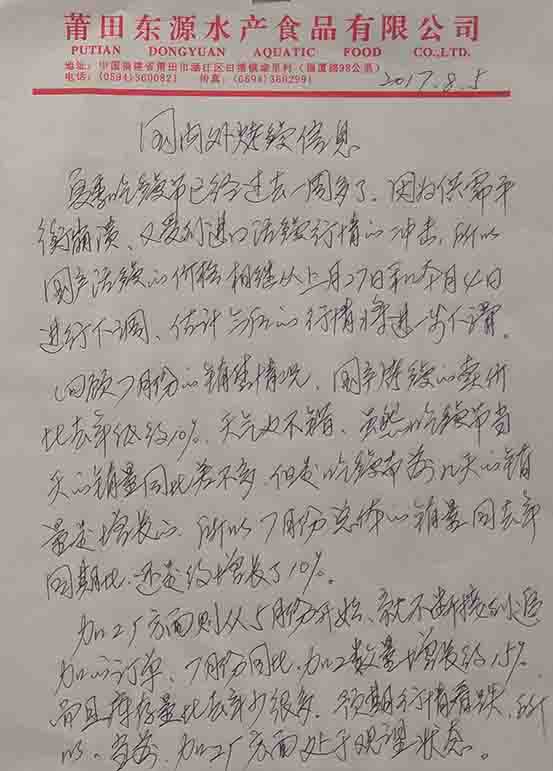 莆田东源水产食品有限公司
PUTIAN DONGYUAN AQUATIC FOOD CO.,LTD.
地址：中国福建省莆田市涵江区白塘镇埭里村（福厦路98公里）
电话：(0594)3600821 传真：(0594)3602991
2017.8.5
国内外烤鳗信息
夏季吃鳗节已经过去一周多了，因为供需平
衡崩溃、又受到进口活鳗行情的冲击，所以
国产活鳗的价格相继从上月27日和本月4日
进行下调、估计今后的行情将进一步下滑。
回顾7月份的销售情况，国产烤鳗的卖价
比去年低约10%、天气也不错、虽然吃鳗节当
天的销量同比差不多，但是吃鳗节前几天的销
量是增长的、所以7月份总体的销量同去年
同期比，还是约增长了10%。
加工厂方面则从5月份开始、就不断接到追
加的订单、7月份同比，加工数量增长约15%
而且库存量比去年少很多，预期行情看跌，所
以、当前、加工厂方面处于观望状态。